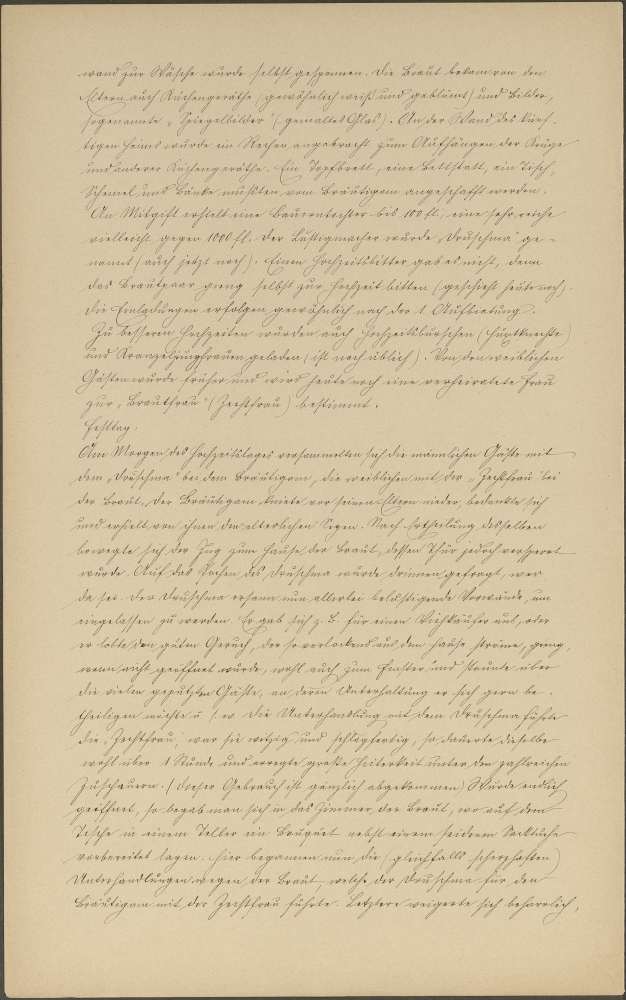 wand zur Wäsche wurde selbst gesponnen. Die Braut bekam von den
Eltern auch Küchengeräthe (gewöhnlich weiß und geblümt) und Bilder,
sogenannte „Spiegelbilder" (gemaltes Glas). An der Wand des künf-
tigen Heims wurde ein Rechen angebracht zum Aufhängen der Krüge
und anderer Küchengeräthe. Ein Topfbrett, eine Bettstatt, ein Tisch,
Schemel und Bänke mußten vom Bräutigam angeschafft werden.
An Mitgift erhielt eine Bauerntochter bis 100 fl., eine sehr reiche
vielleicht gegen 1000 fl. Der Lustigmacher wurde „Druschma" ge-
nannt (auch jetzt noch). Einen Hochzeitsbitter gab es nicht, denn
das Brautpaar gieng selbst zur Hochzeit bitten (geschieht heute noch).
Die Einladungen erfolgen gewöhnlich nach der 1. Aufbietung.
Zu besseren Hochzeiten wurden auch Hochzeitsburschen
und Kranzeljungfrauen geladen (ist noch üblich). Von den weiblichen
Gästen wurde früher und wird heute noch eine verheiratete Frau
zur „Brautfrau" (Zechtfrau) bestimmt.
Festtag.
Am Morgen des Hochzeitstages versammelten sich die männlichen Gäste mit
dem „Druschma" bei dem Bräutigam, die weiblichen mit der „Zechtfrau" bei
der Braut. Der Bräutigam kniete vor seinen Eltern nieder, bedankte sich
und erhielt von ihnen den elterlichen Segen. Nach Ertheilung desselben
bewegte sich der Zug zum Hause der Braut, dessen Thür jedoch versperrt
wurde. Auf das Pochen des Druschma wurde drinnen gefragt, wer
da sei. Der Druschma ersann nun allerlei belustigende Vorwände, um
eingelassen zu werden. Er gab sich z. B. für einen Viehkäufer aus, oder
er lobte den guten Geruch, der so verlockend aus dem Hause ströme, gieng,
wenn nicht geöffnet wurde, wohl auch zum Fenster und staunte über
die vielen geputzten Gäste, an deren Unterhaltung er sich gern be-
theiligen möchte u. s. w. Die Unterhandlung mit dem Druschma führte
die „Zechtfrau", war sie witzig und schlagfertig, so dauerte dieselbe
wohl über 1 Stunde und erregte große Heiterkeit unter den zahlreichen
Zuschauern. (Dieser Gebrauch ist gänzlich abgekommen.) Wurde endlich
geöffnet, so begab man sich in das Zimmer der Braut, wo auf dem
Tische in einem Teller ein Bouquet nebst einem seidenen Sacktuche
vorbereitet lagen. Hier begannen nun die (gleichfalls scherzhaften)
Unterhandlungen wegen der Braut, welche der Druschma für den
Bräutigam mit der Zechtfrau führte. Letztere weigerte sich beharrlich,